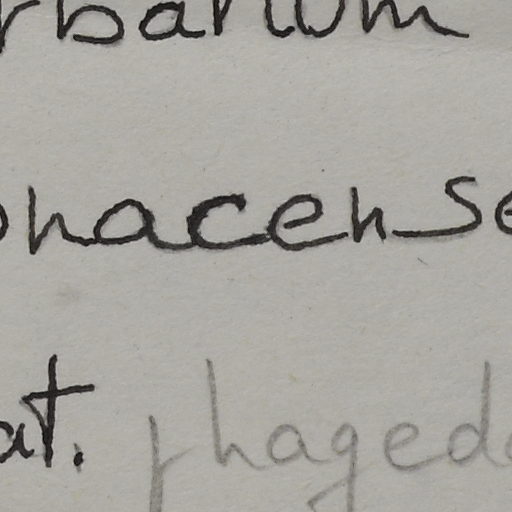 rbarium
onacense
at. phaged